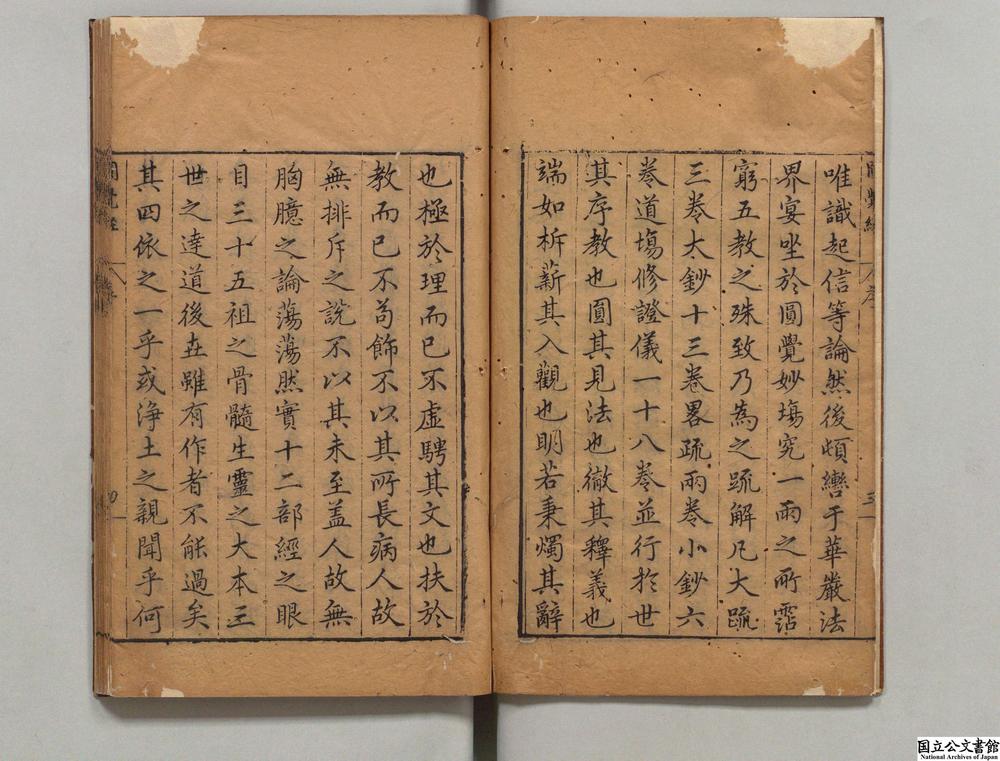 唯識起信等論然後頓轡于華嚴法
界宴坐於圓覺妙場究一雨之所霑
窮五教之殊致乃為之䟽解凡大䟽
三卷大鈔十三卷畧䟽兩卷小鈔六
卷道塲修證儀一十八卷並行於世
其序教也圓其見法也徹其釋義也
端如析薪其入觀也明若秉燭其辭
也極於理而已不虛騁其文也扶於
教而已不苟飾不以其所長病人故
無排斥之說不以其未至盖人故無
胸臆之論蕩蕩然實十二部經之眼
目三十五祖之骨髓生靈之大本三
世之達道後世雖有作者不能過矣
其四依之一乎或淨土之親聞乎何
国立公文書館
National Archives of Japan